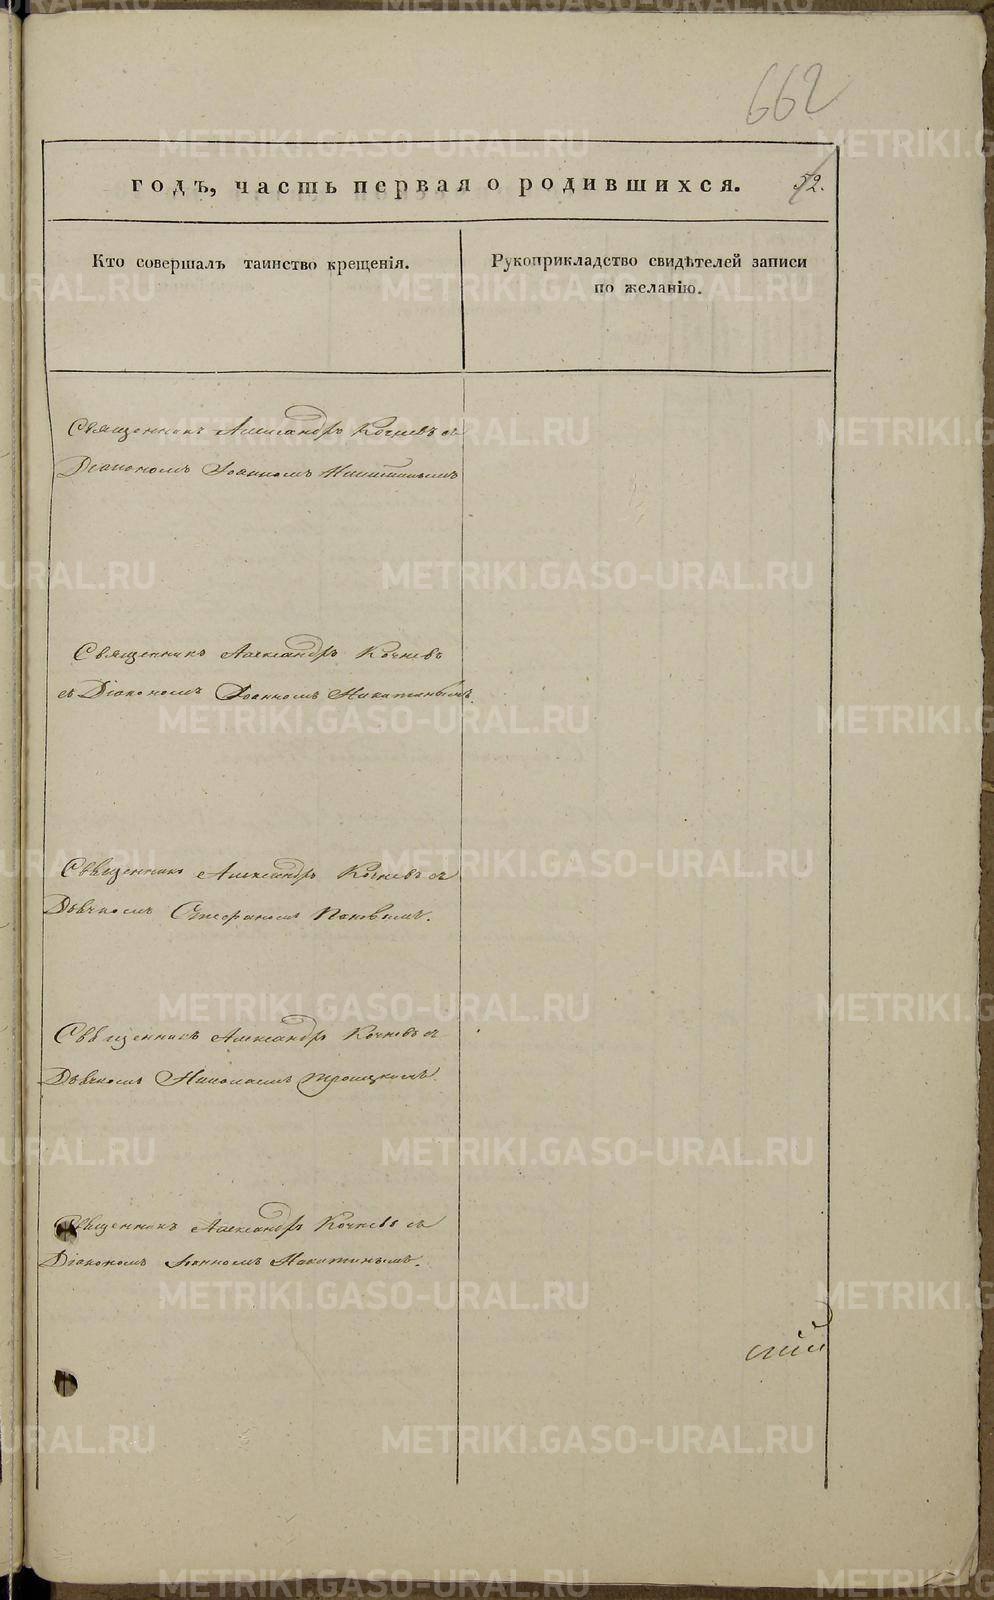 662
годъ, часть первая о родившихся. 52.
Кто совершалъ таинство крещенія.
Рукоприкладство свидѣтелей записи
по желанію.
Священникъ Александръ Кочневъ съ
Діакономъ Іоанномъ Никитинымъ
Священникъ Александръ Кочневъ
съ Діакономъ Іоанномъ Никитинымъ.
Священникъ Александръ Кочневъ съ
Дьячкомъ Стефаномъ Поповымъ.
Священникъ Александръ Кочневъ съ
Дьячкомъ Николаемъ Троицкимъ.
Священникъ Александръ Кочневъ съ
Діакономъ Іоанномъ Никитинымъ.
скій
METRIKI.GASO-URAL.RU